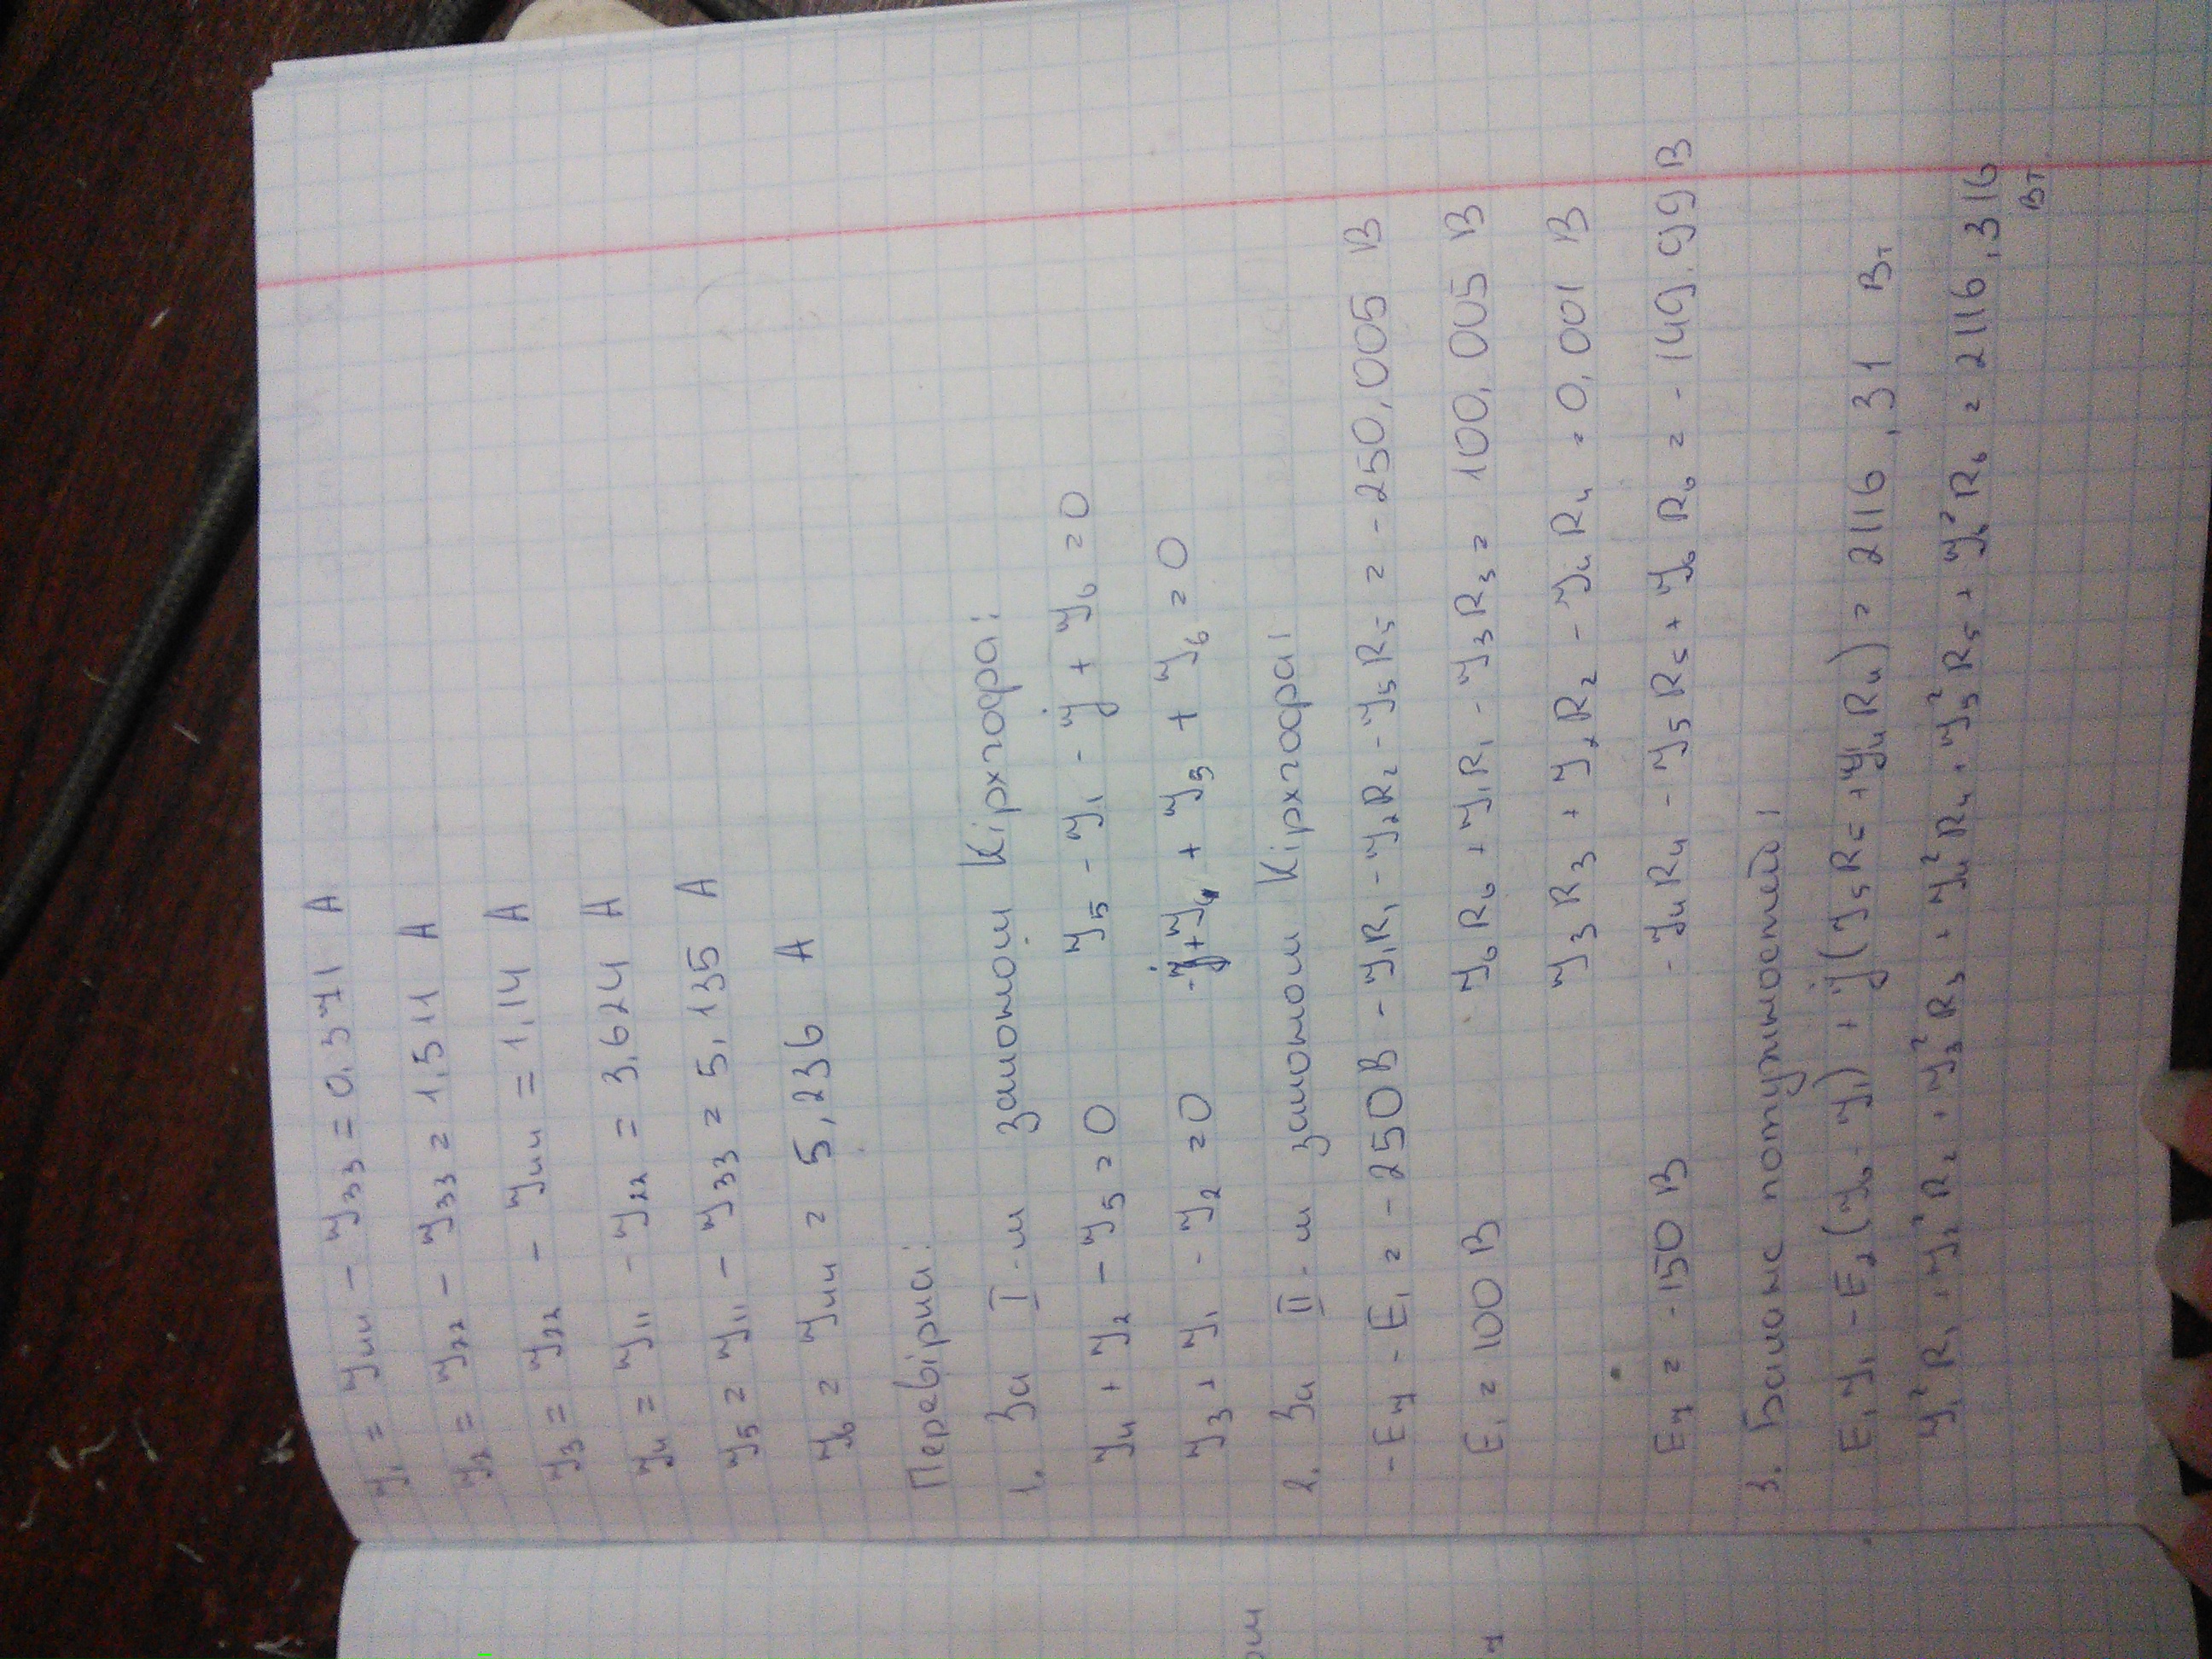 У₁ = У₄₄ - У₃₃ = 0,371 А
У₂ = У₂₂ - У₃₃ = 1,511 А
У₃ = У₂₂ - У₄₄ = 1,14 А
У₄ = У₁₁ - У₂₂ = 3,624 А
У₅ = У₁₁ - У₃₃ = 5,135 А
У₆ = У₄₄ = 5,236 А
Перевірка:
1. За I-м законом Кірхгофа:
У₄ + У₂ - У₅ = 0 У₅ - У₁ - У + У₆ = 0
У₃ + У₁ - У₂ = 0 -У + У₄ + У₅ + У₆ = 0
2. За II-м законом Кірхгофа:
-Е₄ - Е₁ = -250В -У₁R₁ - У₂R₂ - У₅R₅ = -250,005 В
Е₁ = 100 В У₆R₆ + У₁R₁ - У₃R₃ = 100,005 В
У₃R₃ + У₂R₂ - У₄R₄ = 0,001 В
Е₄ = -150 В -У₄R₄ - У₅R₅ + У₆R₆ = -149,99 В
3. Баланс потужностей:
Е₁У₁ - Е₂(У₆ - У₁) + У(У₅R₅ + У₄R₄) = 2116,31 Вт
У₁²R₁ + У₂²R₂ + У₃²R₃ + У₄²R₄ + У₅²R₅ + У₆²R₆ = 2116,316
Вт